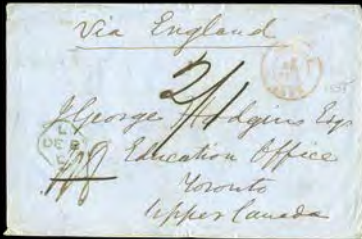 Via England
2/1
J George Hodgins Esqr
Education Office
Toronto
Upper Canada